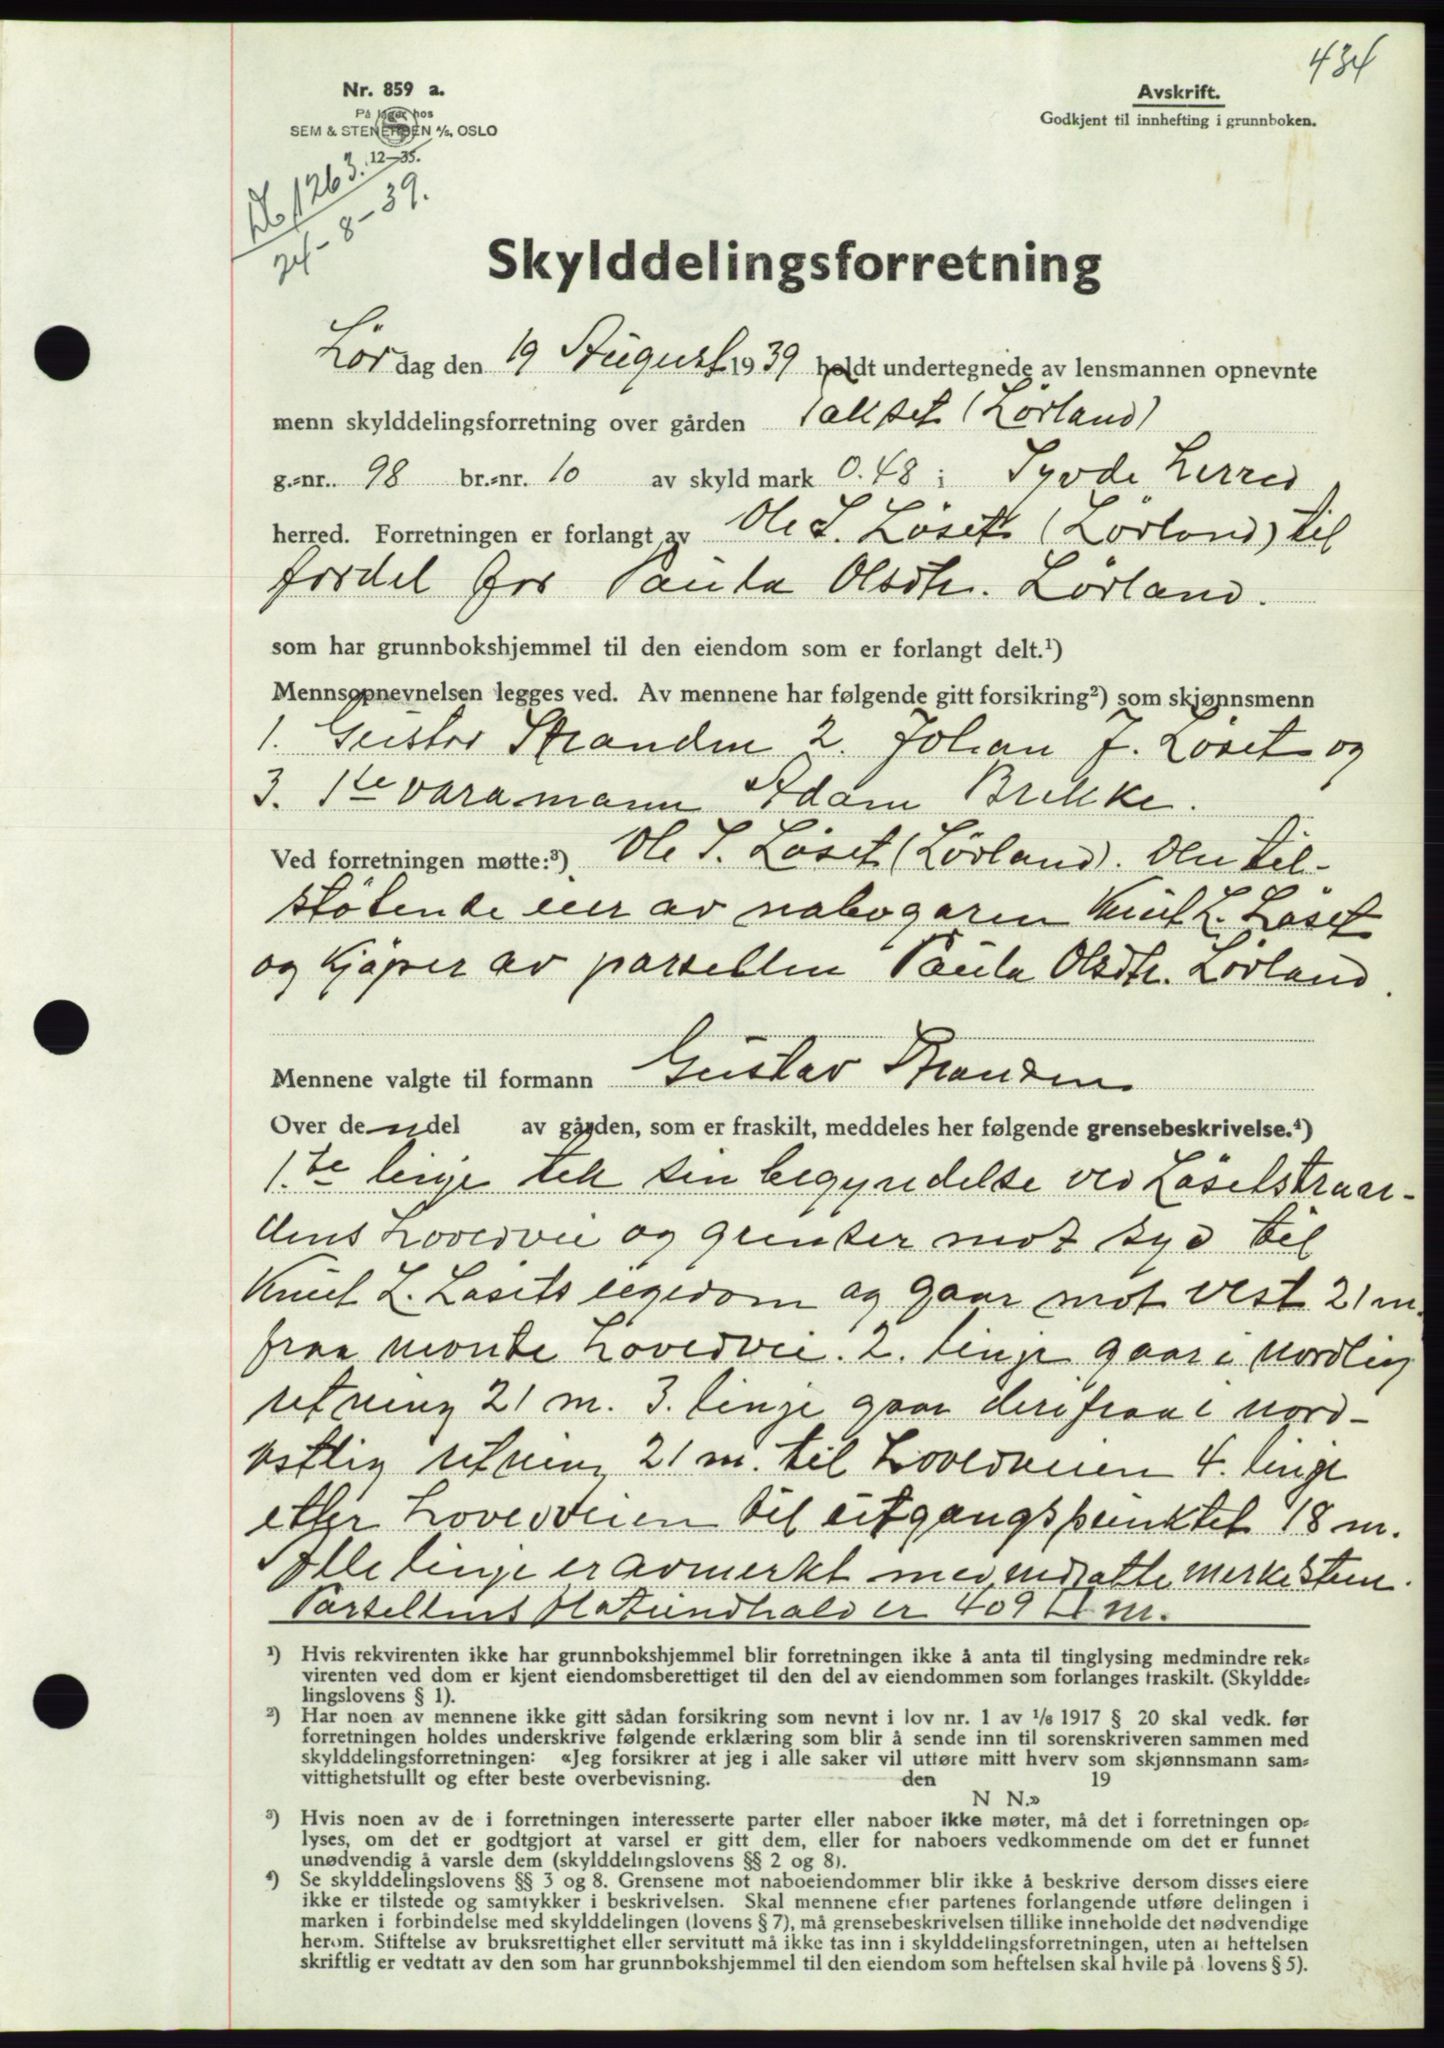 434
Nr. 859 a.
På lager hos
SEM & STENERSEN A/S, OSLO
12—35.
Avskrift.
Godkjent til innhefting i grunnboken.
No 1263.
24-8-39.
Skylddelingsforretning
Lør dag den 19 August 19 39 holdt undertegnede av lensmannen opnevnte
menn skylddelingsforretning over gården (Lörland)
g.=nr. 98 br.=nr. 10 av skyld mark 0.48 i Syvde Herred
herred. Forretningen er forlangt av Ole S. Löset (Lörland) til
fordel for Paula Olsdtr. Lörland.
som har grunnbokshjemmel til den eiendom som er forlangt delt.¹)
Mennsopnevnelsen legges ved. Av mennene har følgende gitt forsikring²) som skjønnsmenn
1. Gustav Stranden 2. Johan J. Löset og
3. 1te varamann Adam Brekke.
Ved forretningen møtte:³) Ole S. Löset (Lörland). Den til-
stötende eier av nabogaren Knut L. Löset
og kjöper av parsellen Paula Olsdtr. Lörland.
Mennene valgte til formann Gustav Stranden
Over de n del av gården, som er fraskilt, meddeles her følgende grensebeskrivelse.⁴)
1.te linje tek sin begyndelse ved Lösetstran-
dens hovedvei og grenser mot syd til
Knut L. Lösets eigedom og gaar mot vest 21 m.
fraa hovedvei. 2. linje gaar i nordlig
retning 21 m. 3. linje gaar derifraa i nord-
ostlig retning 21 m. til hovedveien 4. linje
etter hovedveien til utgangspunktet 18 m.
Alle linje er avmerkt med nedsatte merkesteen.
Parsellens flateindhald er 409 □ m.
¹) Hvis rekvirenten ikke har grunnbokshjemmel blir forretningen ikke å anta til tinglysing medmindre rek=
virenten ved dom er kjent eiendomsberettiget til den del av eiendommen som forlanges fraskilt. (Skyldde=
lingslovens § 1).
²) Har noen av mennene ikke gitt sådan forsikring som nevnt i lov nr. 1 av 1/6 1917 § 20 skal vedk. før
forretningen holdes underskrive følgende erklæring som blir å sende inn til sorenskriveren sammen med
skylddelingsforretningen: «Jeg forsikrer at jeg i alle saker vil utføre mitt hverv som skjønnsmann sam=
vittighetsfullt og efter beste overbevisning. den 19
N N.»
³) Hvis noen av de i forretningen interesserte parter eller naboer ikke møter, må det i forretningen op=
lyses, om det er godtgjort at varsel er gitt dem, eller for naboers vedkommende om det er funnet
unødvendig å varsle dem (skylddelingslovens §§ 2 og 8).
⁴) Se skylddelingslovens §§ 3 og 8. Grensene mot naboeiendommer blir ikke å beskrive dersom disses eiere
ikke er tilstede og samtykker i beskrivelsen. Skal mennene efter partenes forlangende utføre delingen i
marken i forbindelse med skylddelingen (lovens § 7), må grensebeskrivelsen tillike inneholde det nødvendige
herom. Stiftelse av bruksrettighet eller servitutt må ikke tas inn i skylddelingsforretningen, uten at heftelsen
skriftlig er vedtatt av den som har grunnbokshjemmel til den eiendom som heftelsen skal hvile på lovens § 5).